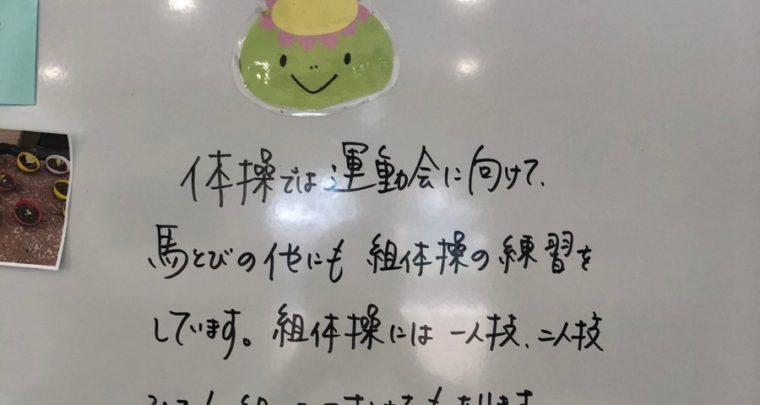 体操では運動会に向けて、
馬とびの他にも 組体操の練習を
しています。組体操には 一人技、二人技